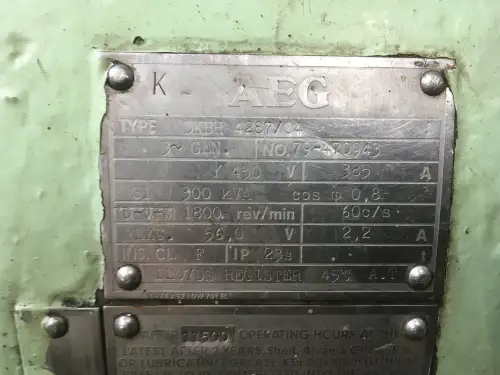 K AEG
TYPE DKBH 4287/04
3~ GEN. NO. 79-470943
Y 450 V 385 A
S1 300 KVA cos φ 0,8
1800 rev/min 60c/s
56,0 V 2,2 A
INS. CL. F IP 23s
LLOYDS REGISTER 45°C A.T
AFTER 11500 OPERATING HOURS AT THE
LATEST AFTER 2 YEARS, Shell-Alvania GREASE
OR LUBRICATING GREASE